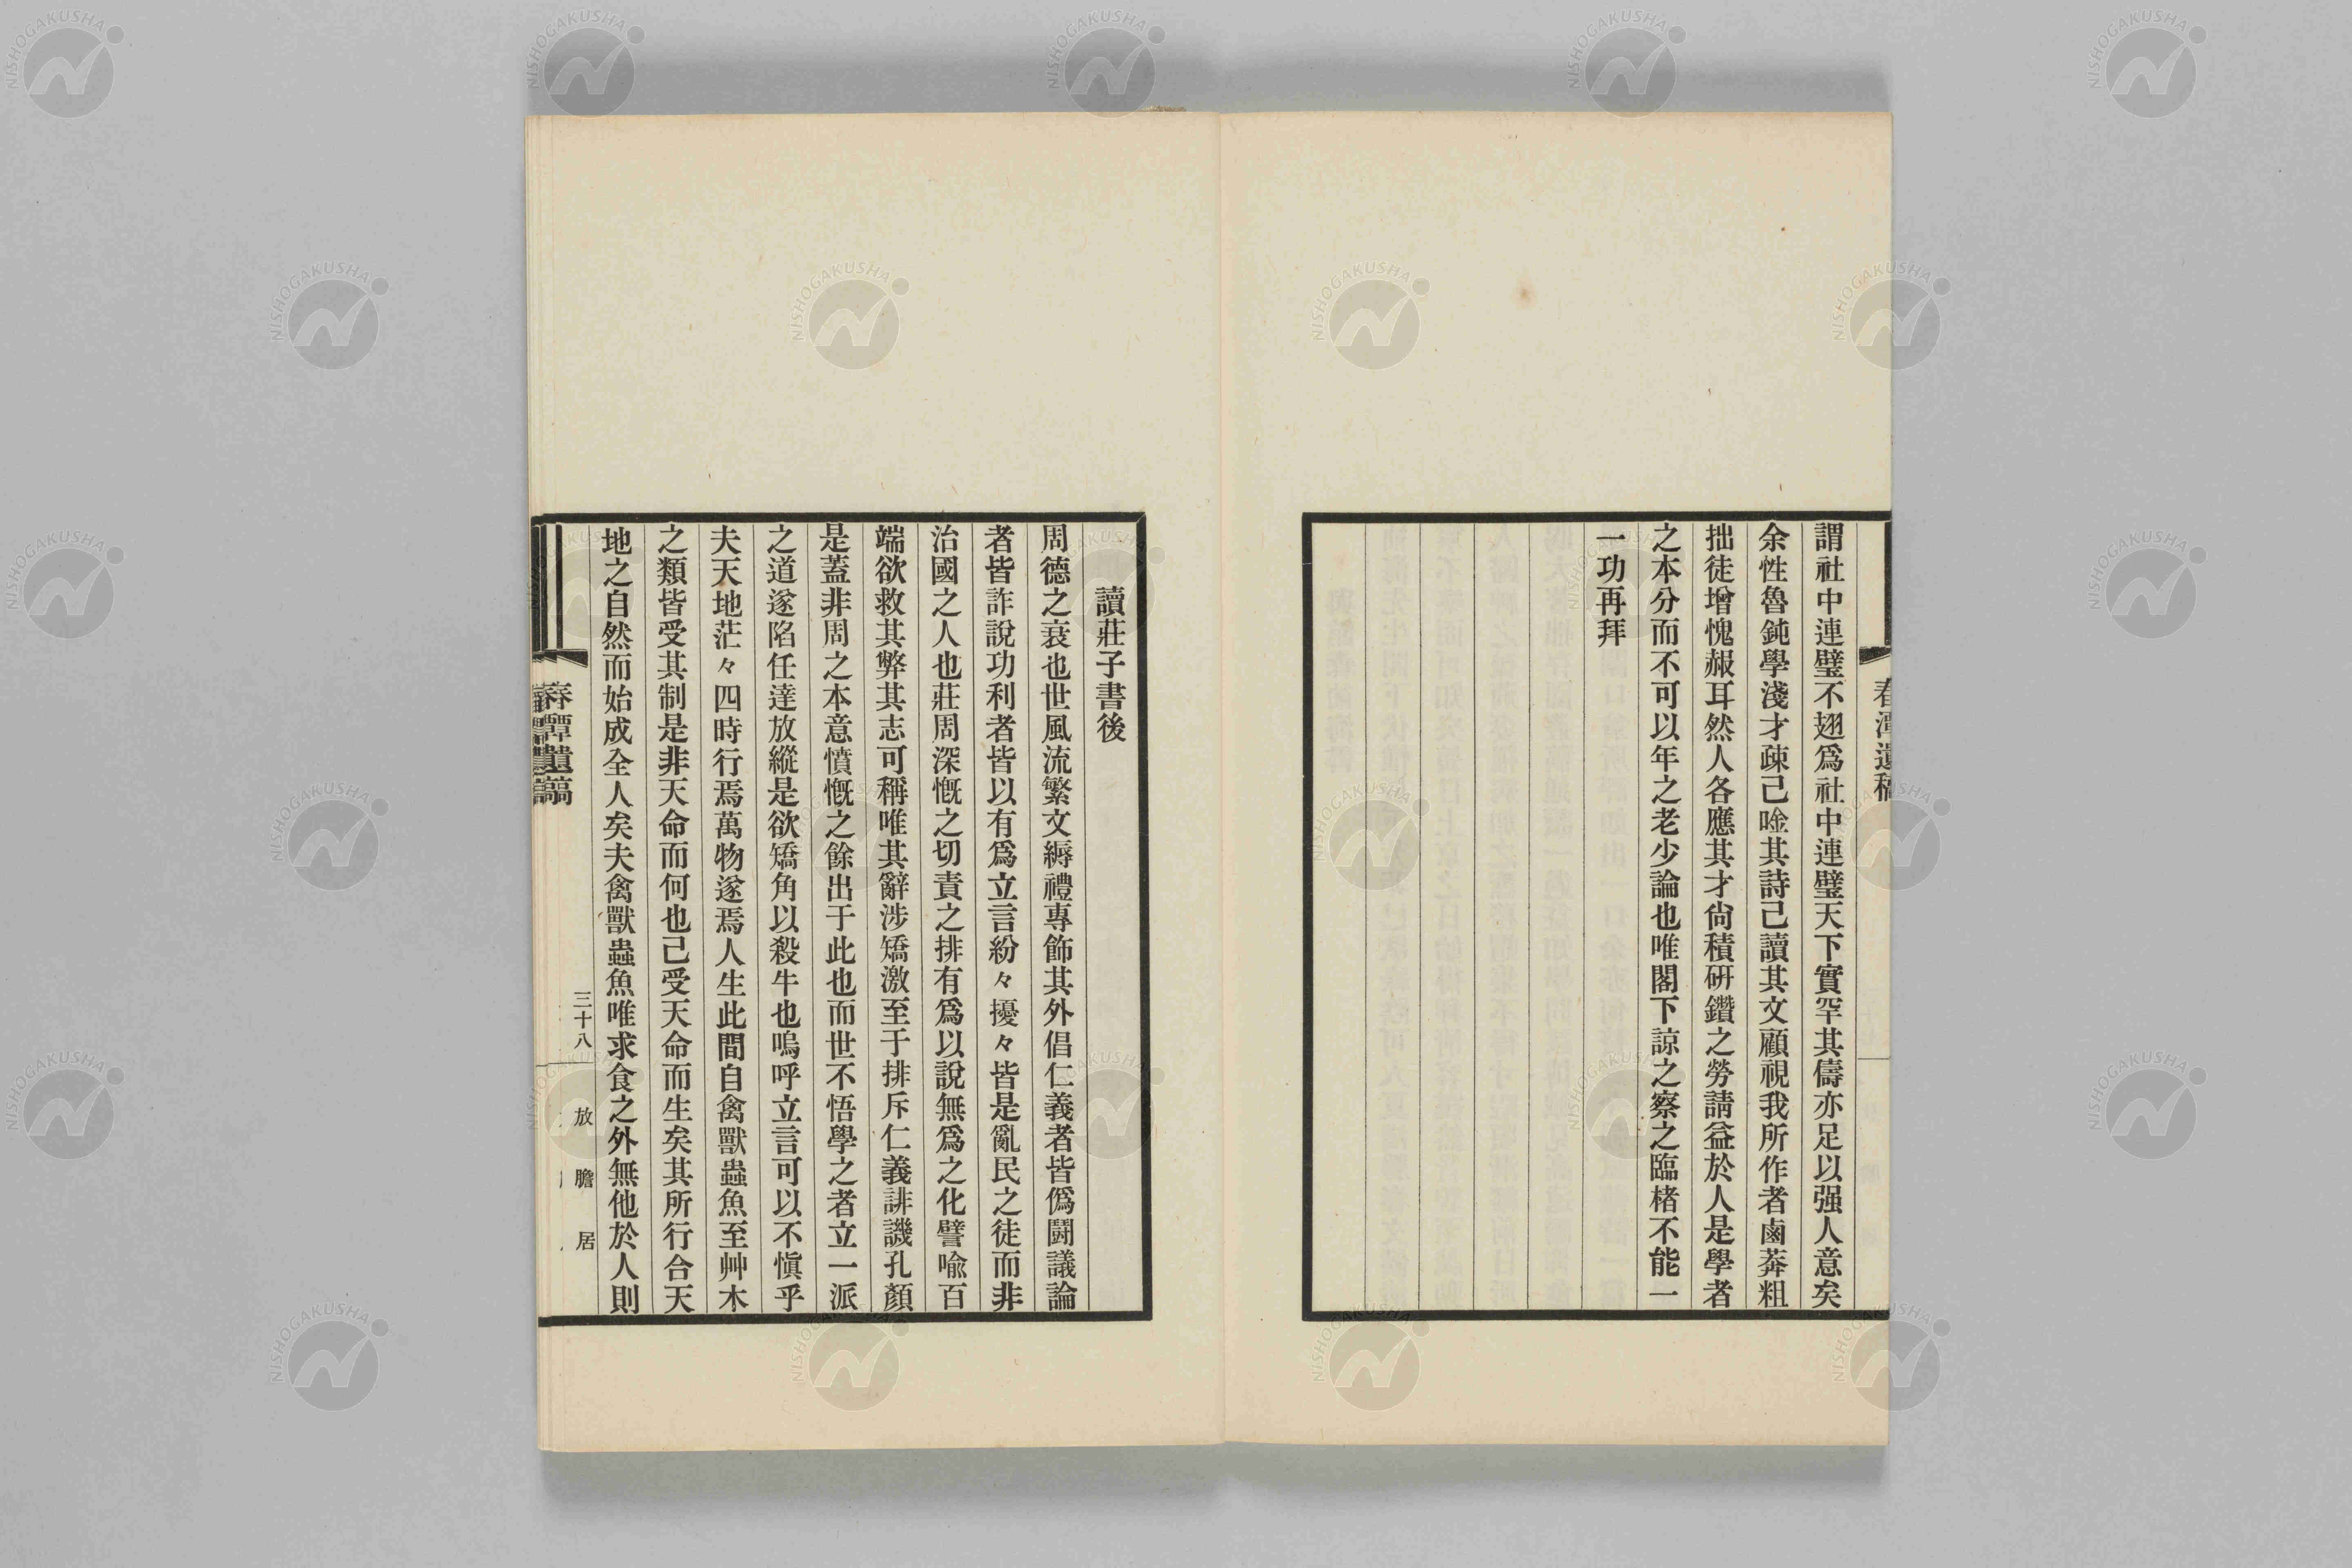 春潭遺稿
謂社中連璧不翅爲社中連璧天下實罕其儔亦足以强人意矣
余性魯鈍學淺才疎己唫其詩己讀其文顧視我所作者鹵莽粗
拙徒增愧赧耳然人各應其才尙積硏鑽之勞請益於人是學者
之本分而不可以年之老少論也唯閣下諒之察之臨楮不能一
一功再拜
讀莊子書後
周德之衰也世風流繁文縟禮專飾其外倡仁義者皆僞鬪議論
者皆詐說功利者皆以有爲立言紛々擾々皆是亂民之徒而非
治國之人也莊周深慨之切責之排有爲以說無爲之化譬喩百
端欲救其弊其志可稱唯其辭涉矯激至于排斥仁義誹譏孔顏
是蓋非周之本意憤慨之餘出于此也而世不悟學之者立一派
之道遂陷任達放縱是欲矯角以殺牛也嗚呼立言可以不愼乎
夫天地茫々四時行焉萬物遂焉人生此間自禽獸蟲魚至艸木
之類皆受其制是非天命而何也己受天命而生矣其所行合天
地之自然而始成全人矣夫禽獸蟲魚唯求食之外無他於人則
春潭遺稿
三十八
放膽居
NISHOGAKUSHA